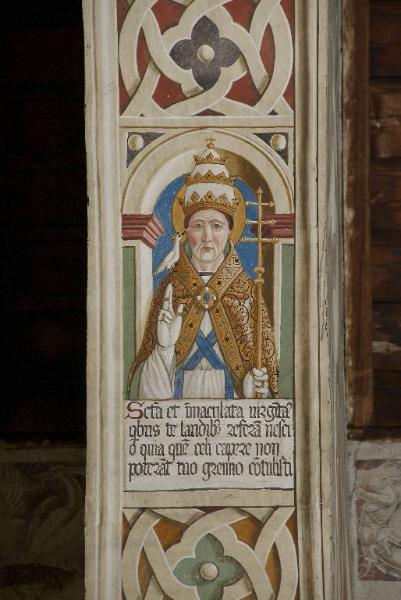 Scta et imaculata uirgitas
qbus te laudib' referã nesci
o quia quẽ celi capere non
poterãt tuo gremio cõtulisti